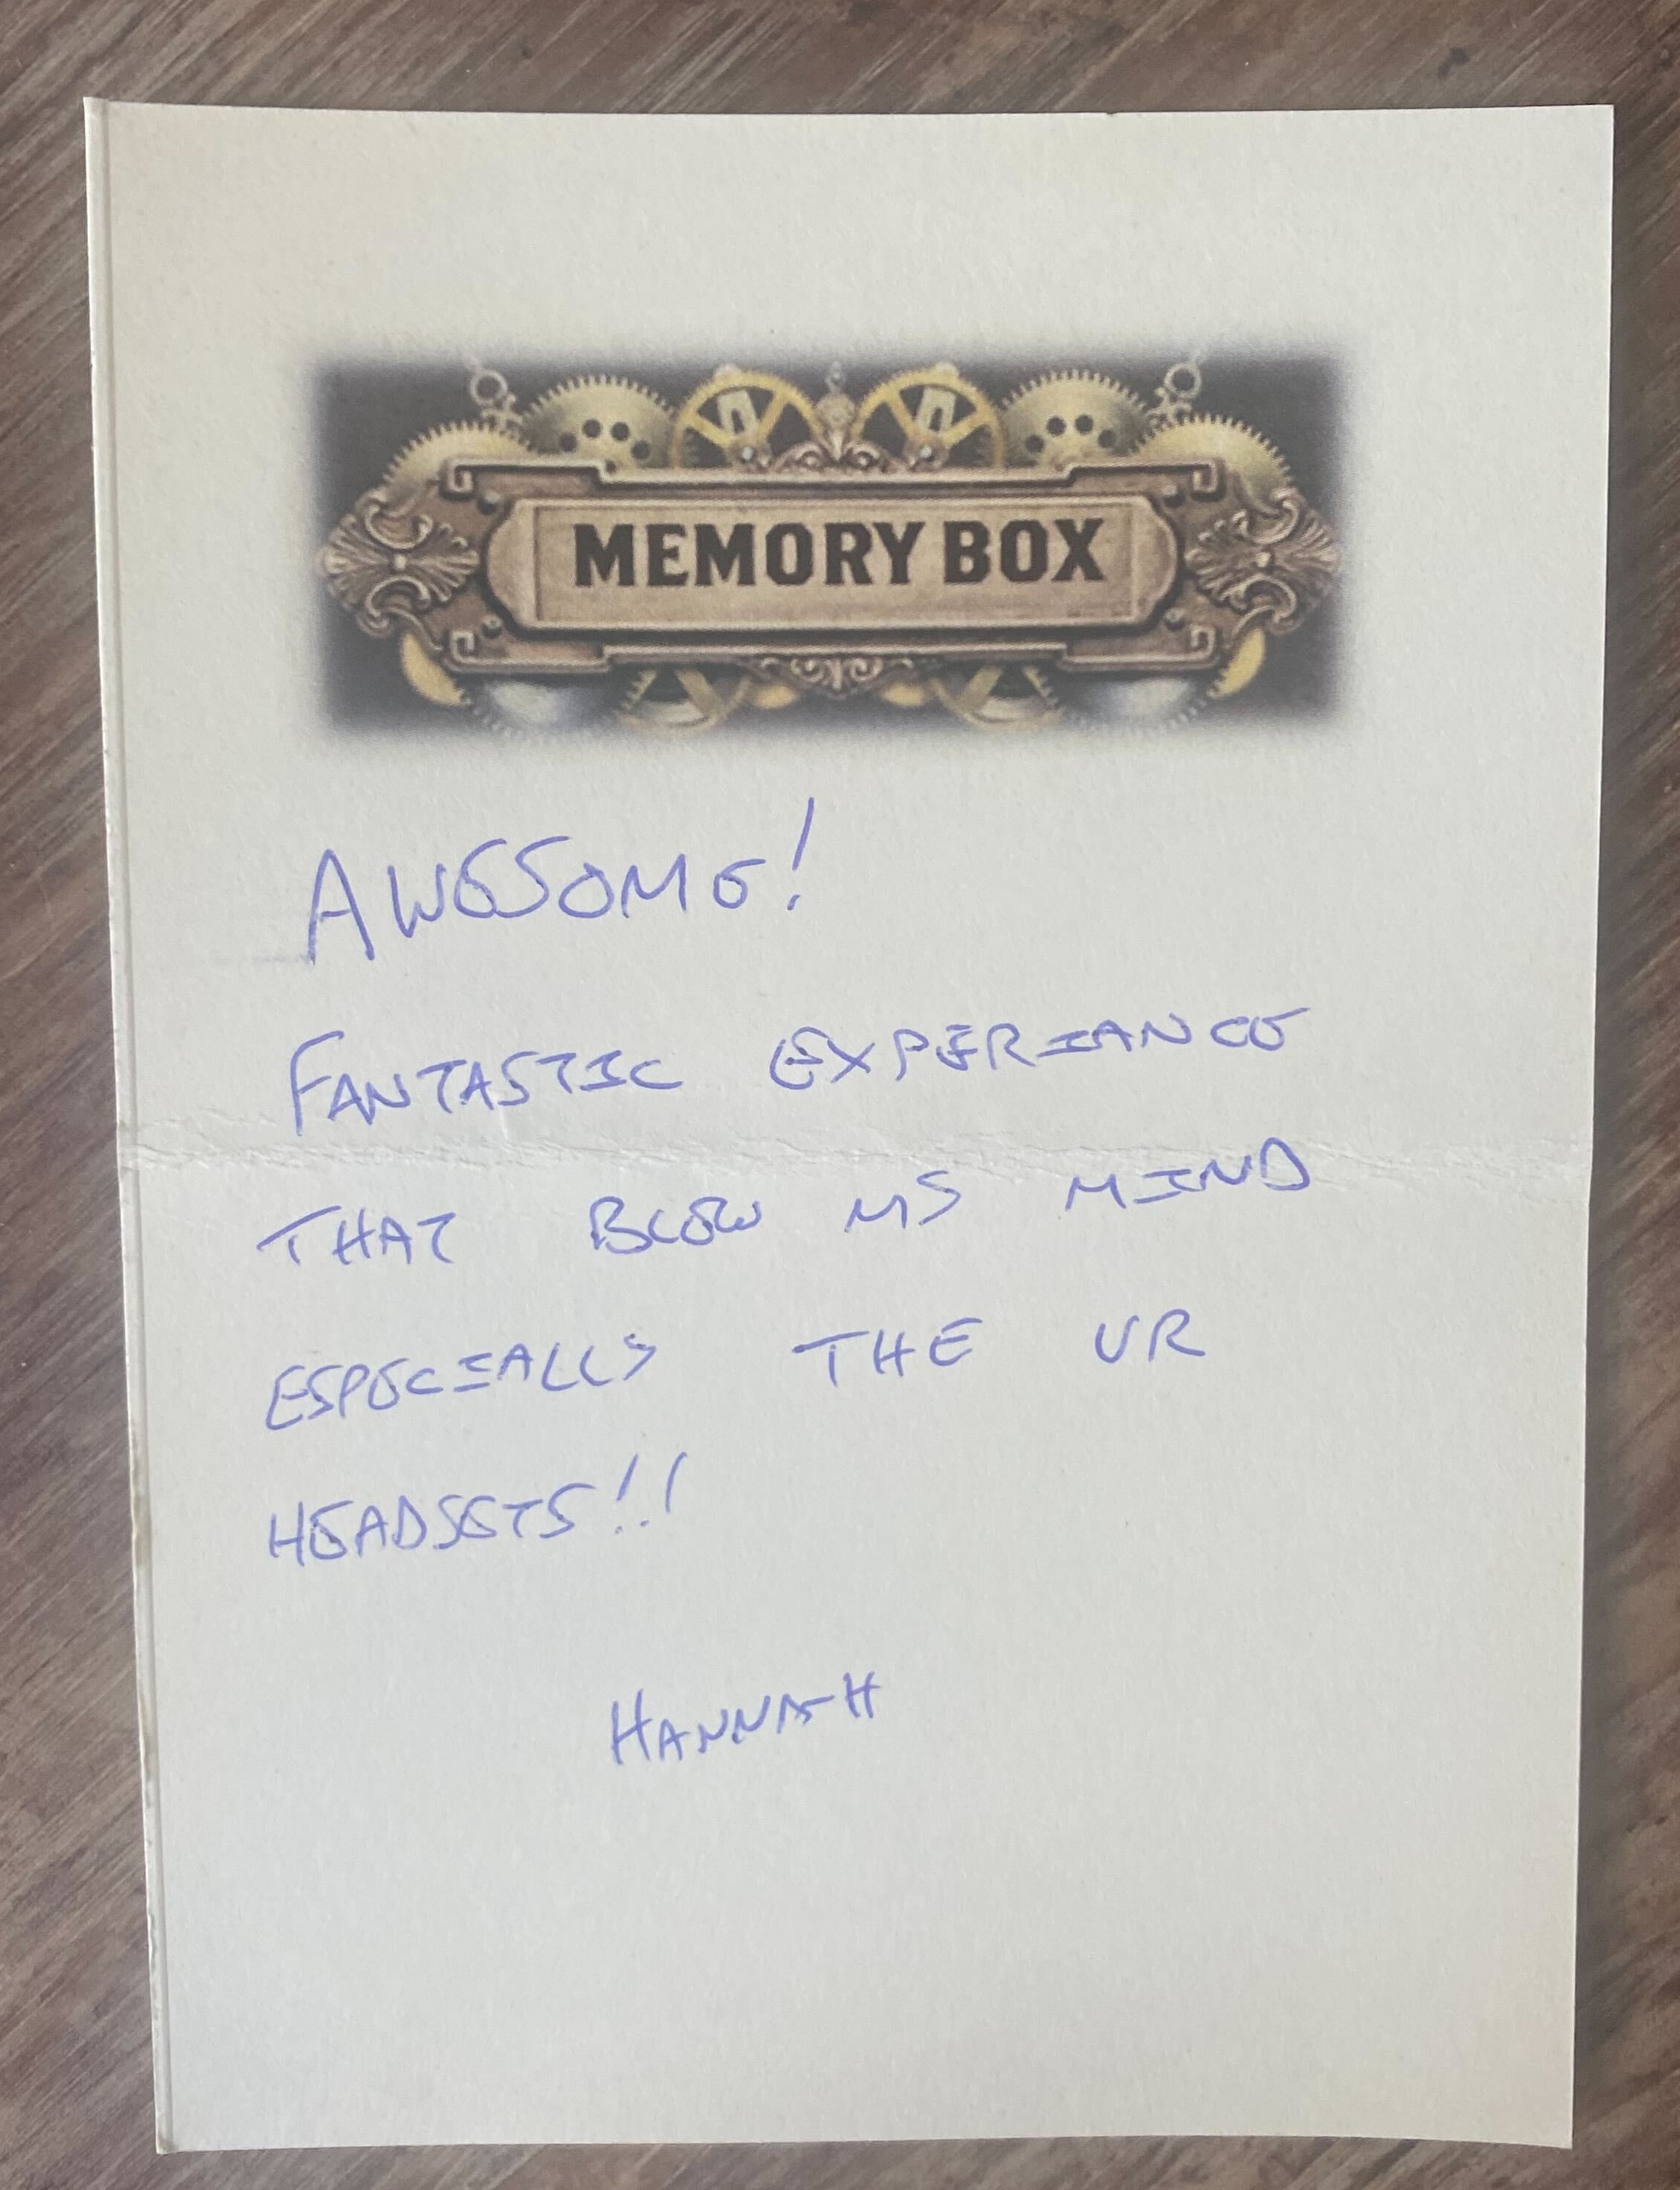 MEMORY BOX
AWESOME!
FANTASTIC EXPERIANCE
THAT BLEW MY MIND
ESPECIALLY THE VR
HEADSETS!!
HANNAH